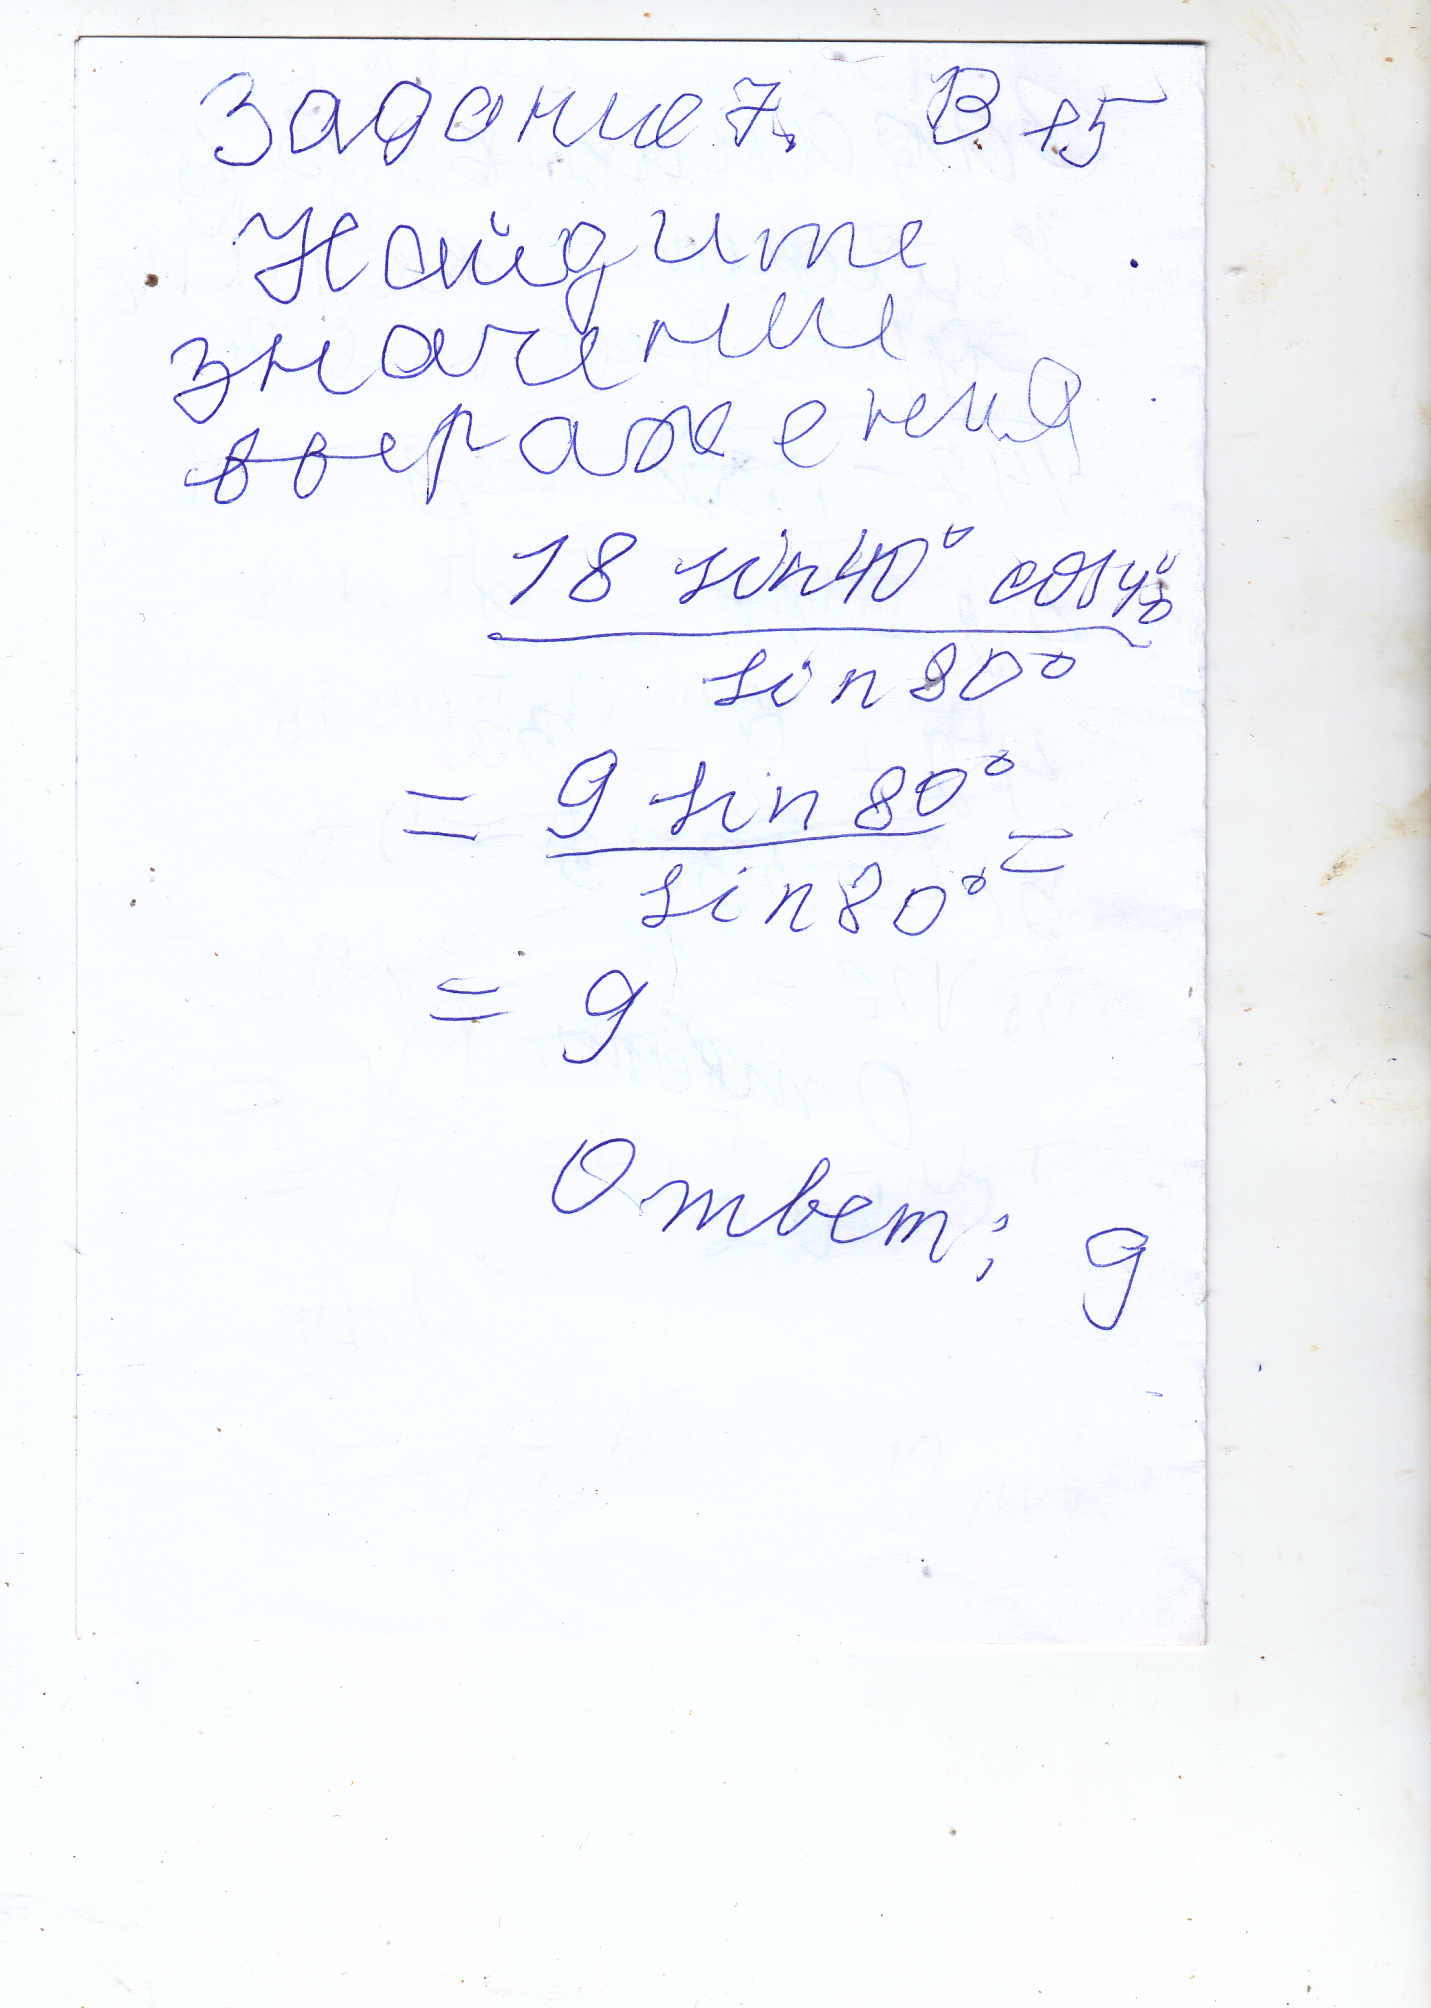 Задание 7. В 15
Найдите
значение
выражения
18 sin40° cos40°
sin80°
= 9 sin80° =
sin80°
= 9
Ответ: 9